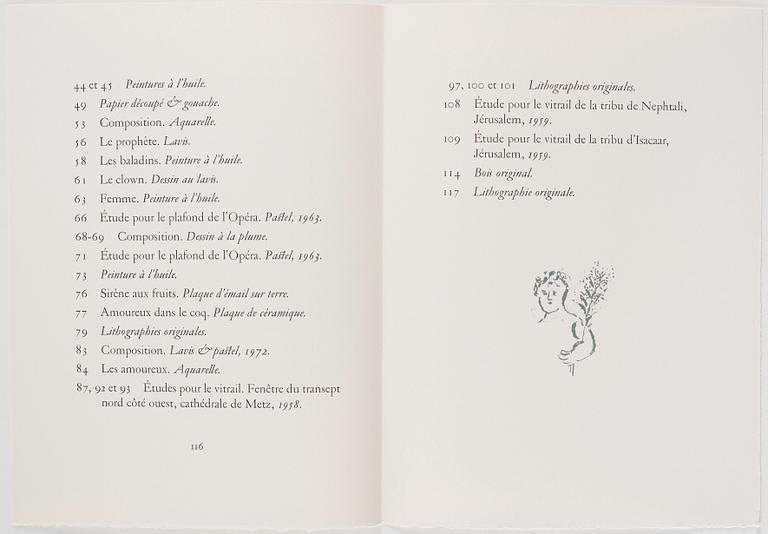 44 et 45 Peintures à l'huile.
49 Papier découpé & gouache.
53 Composition. Aquarelle.
56 Le prophète. Lavis.
58 Les baladins. Peinture à l'huile.
61 Le clown. Dessin au lavis.
63 Femme. Peinture à l'huile.
66 Étude pour le plafond de l'Opéra. Pastel, 1963.
68-69 Composition. Dessin à la plume.
71 Étude pour le plafond de l'Opéra. Pastel, 1963.
73 Peinture à l'huile.
76 Sirène aux fruits. Plaque d'émail sur terre.
77 Amoureux dans le coq. Plaque de céramique.
79 Lithographies originales.
83 Composition. Lavis & pastel, 1972.
84 Les amoureux. Aquarelle.
87, 92 et 93 Études pour le vitrail. Fenêtre du transept
nord côté ouest, cathédrale de Metz, 1958.
116
97, 100 et 101 Lithographies originales.
108 Étude pour le vitrail de la tribu de Nephtali,
Jérusalem, 1959.
109 Étude pour le vitrail de la tribu d'Isacaar,
Jérusalem, 1959.
114 Bois original.
117 Lithographie originale.